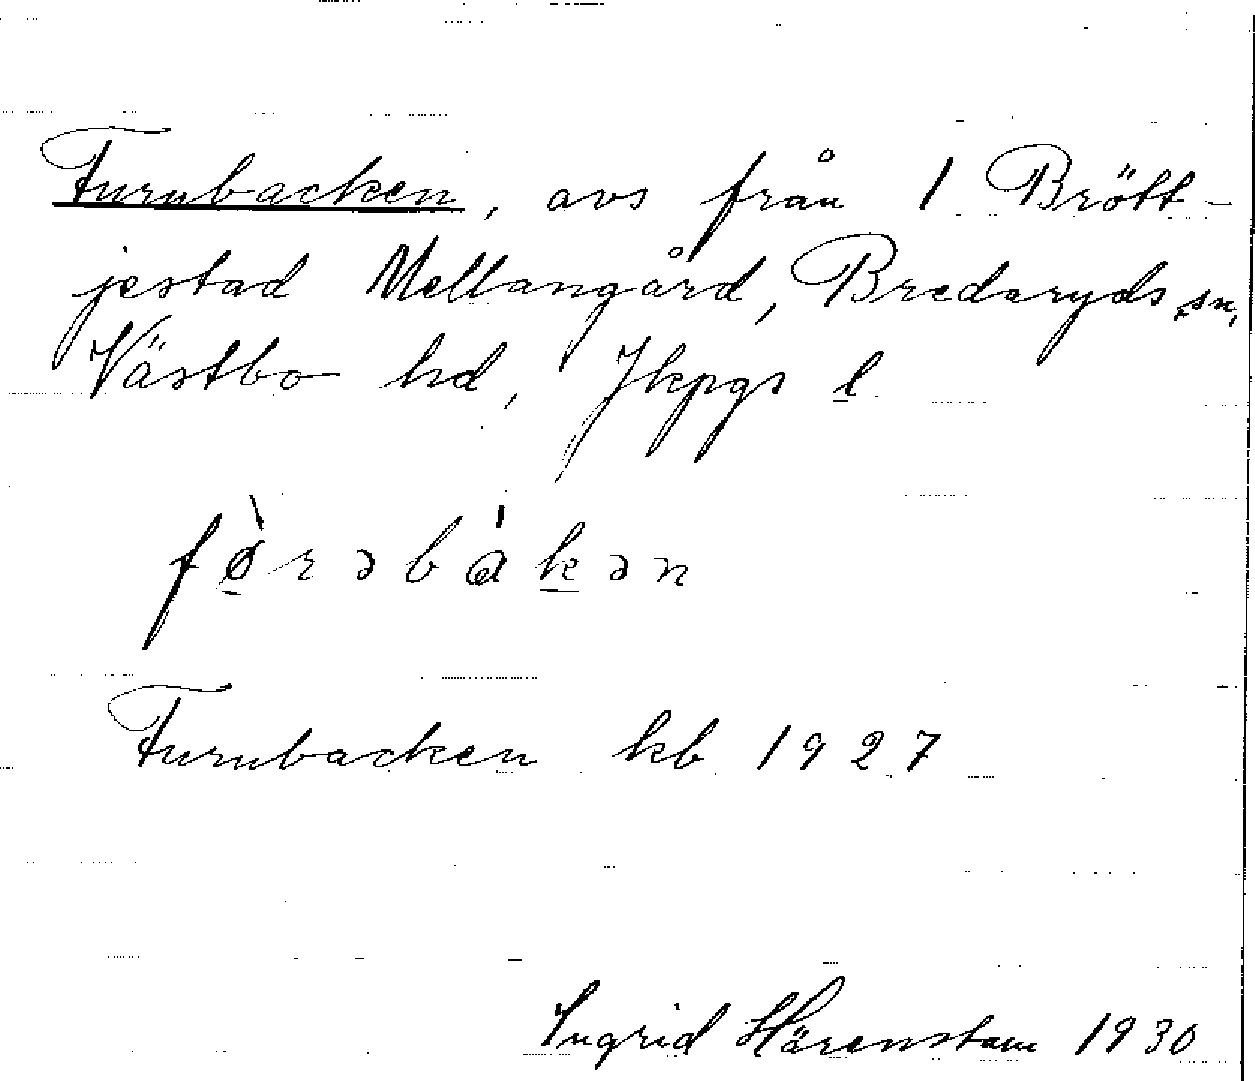 Furubacken, avs från 1 Brött-
jestad Mellangård, Bredaryds sn,
Västbo hd, Jkpgs l
fø̀rəbákən
Furubacken kb 1927
Ingrid Härenstam 1930